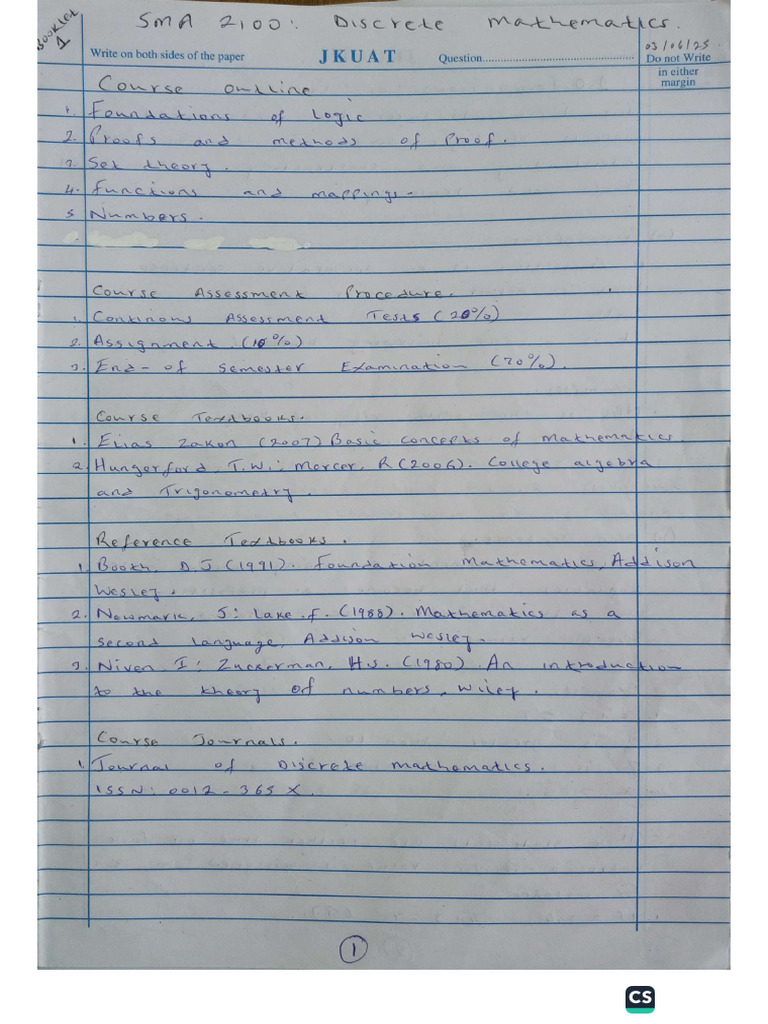 Booklet 1
SMA 2100: Discrete Mathematics.
03/06/25
Write on both sides of the paper JKUAT Question Do not Write in either margin
Course outline
1. Foundations of Logic
2. Proofs and methods of Proof.
3. Set theory.
4. Functions and mappings.
5 Numbers.
Course Assessment Procedure.
1. Continous Assessment Tests (20%)
2. Assignment (10%)
3. End-of semester Examination (70%).
Course Textbooks.
1. Elias Zakon (2007) Basic concepts of mathematics.
2. Hungerford, T.W: Mercer, R (2006). College algebra
and Trigonometry.
Reference Textbooks.
1. Booth, D.J (1991). Foundation Mathematics, Addison
Wesley.
2. Newmark, J: Lake.f. (1988). Mathematics as a
second language, Addison Wesley.
3. Niven I: Zuckerman, H.s. (1980) An introduction
to the theory of numbers, Wiley.
Course Journals.
1. Journal of Discrete mathematics.
ISSN: 0012-365 X.
1
CS